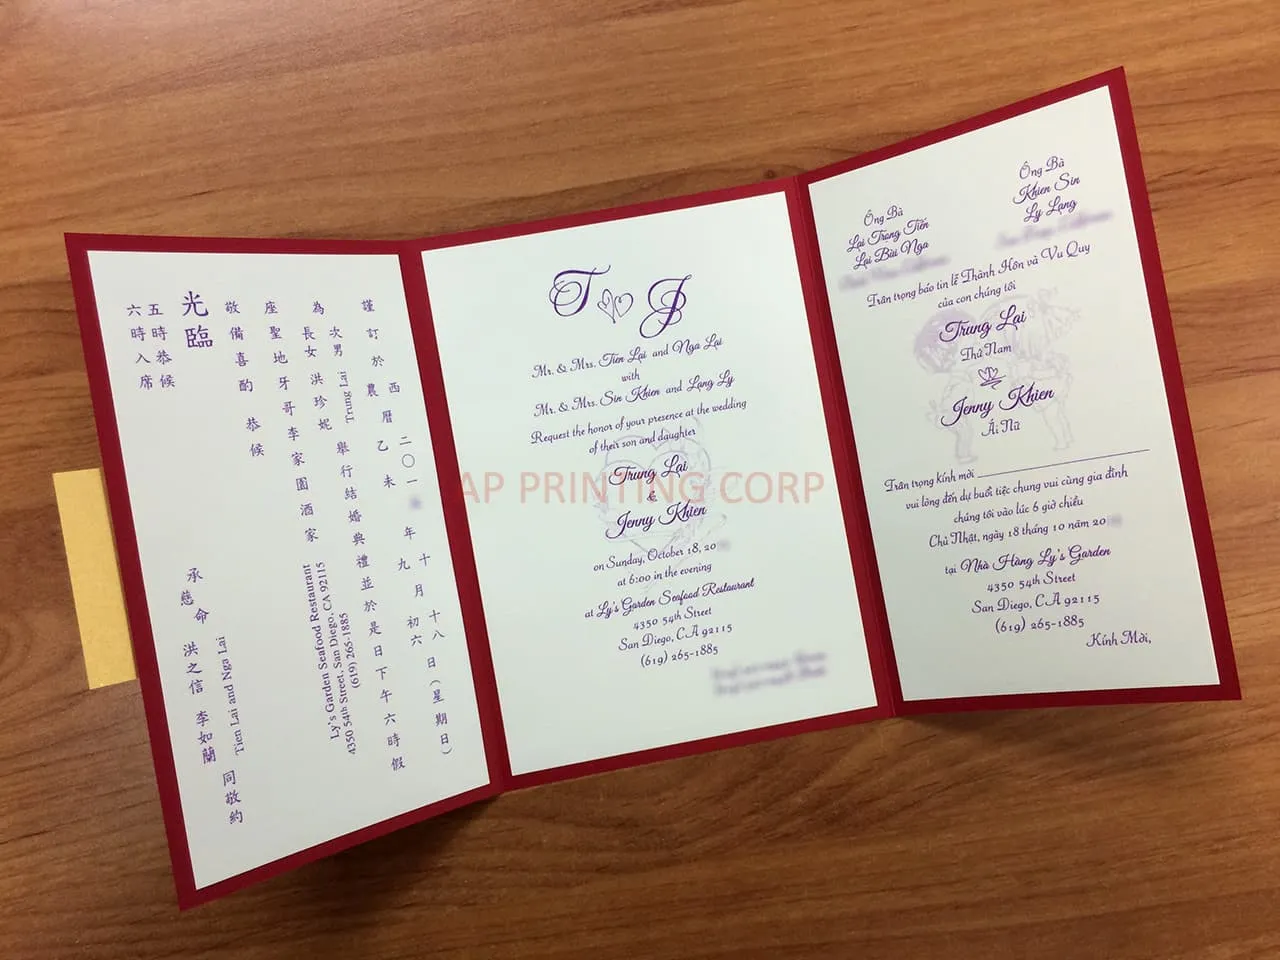 謹訂於
西
農
曆
二〇一
乙未
年
十月十八日(星期日)
九月初六
為
次男 Trung Lai
長女 洪珍妮
舉行結婚典禮並於是日下午六時假
座聖地牙哥李家園酒家
Ly's Garden Seafood Restaurant
4350 54th Street, San Diego, CA 92115
(619) 265-1885
敬備喜酌 恭候
光臨
承慈命
Tien Lai and Nga Lai
洪之信 李如蘭
同敬約
五時恭候
六時入席
T J
Mr. & Mrs. Tien Lai and Nga Lai
with
Mr. & Mrs. Sin Khien and Lang Ly
Request the honor of your presence at the wedding
of their son and daughter
Trung Lai
&
Jenny Khien
on Sunday, October 18, 20
at 6:00 in the evening
at Ly's Garden Seafood Restaurant
4350 54th Street
San Diego, CA 92115
(619) 265-1885
AP PRINTING CORP
Ông Bà
Lai Trong Tiến
Lai Bùi Nga
Ông Bà
Khien Sin
Ly Lang
Trân trọng báo tin lễ Thành Hôn và Vu Quy
của con chúng tôi
Trung Lai
Thứ Nam
Jenny Khien
Ái Nữ
Trân trọng kính mời
vui lòng đến dự buổi tiệc chung vui cùng gia đình
chúng tôi vào lúc 6 giờ chiều
Chủ Nhật, ngày 18 tháng 10 năm 20
tại Nhà Hàng Ly's Garden
4350 54th Street
San Diego, CA 92115
(619) 265-1885
Kính Mời,